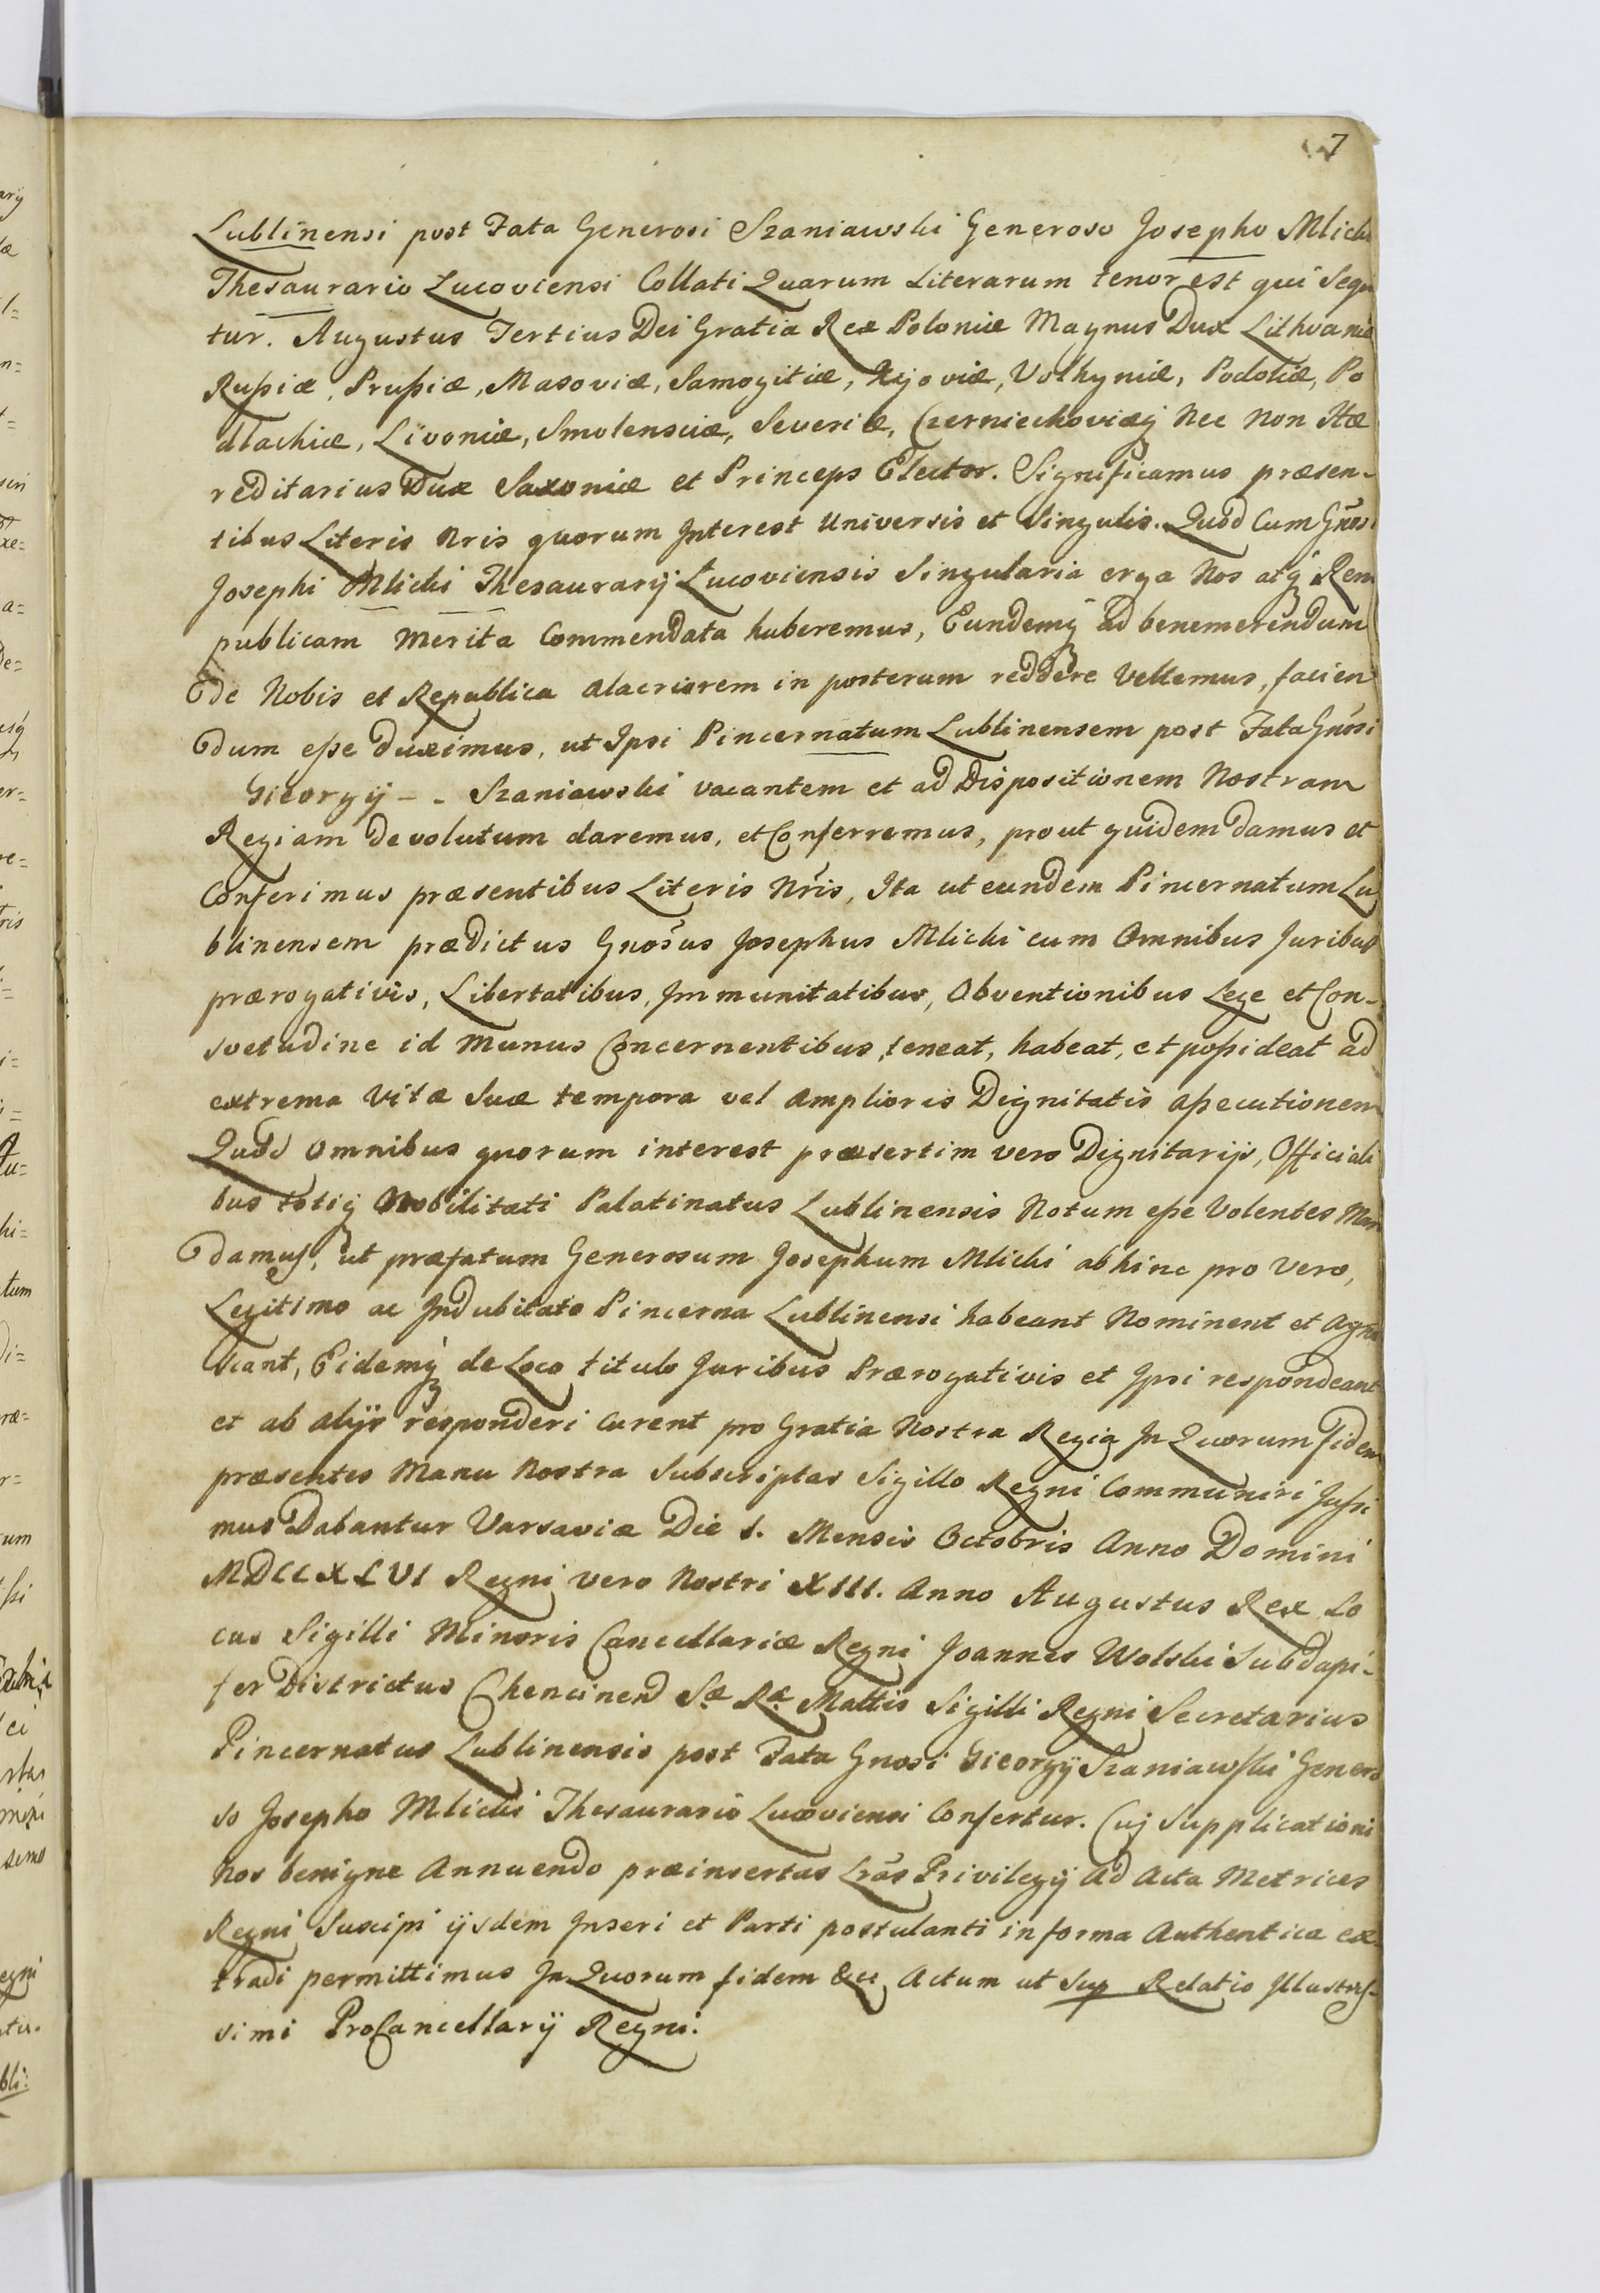 7
Lublinensi post Fata Generosi Szaniawski Generoso Josepho Mlicki
Thesaurario Lucoviensi Collati Quarum Literarum tenor est qui Sequi
tur. Augustus Tertius Dei Gratia Rex Poloniæ Magnus Dux Lithvaniæ
Rußiæ, Prußiæ, Masoviæ, Samogitiæ, Kijoviæ, Volhyniæ, Podoliæ, Po
dlachiæ, Livoniæ, Smolensciæ, Severiæ, Czerniechoviæq; Nec Non Hæ
reditarius Dux Saxoniæ et Princeps Elector. Significamus præsen-
tibus Literis Nris quorum Interest Universis et Singulis. Quod Cum Gnosi
Josephi Mlicki Thesaurarij Lucoviensis Singularia erga Nos atq; Rem
publicam Merita Commendata haberemus, Eundemq; ad benemerendum
de Nobis et Republica alacriorem in posterum reddere Vellemus, facien
dum eße duximus, ut Ipsi Pincernatum Lublinensem post Fata Gnosi
Gieorgij - - Szaniawski vacantem et ad Dispositionem Nostram
Regiam devolutum daremus, et Conferremus, prout quidem damus et
Conferimus præsentibus Literis Nris, Ita ut eundem Pincernatum Lu
blinensem prædictus Gnosus Josephus Mlicki cum Omnibus Juribus
prærogativis, Libertatibus, Immunitatibus, Obventionibus Lege et Con-
svetudine id Munus Concernentibus, teneat, habeat, et poßideat ad
extrema Vitæ Suæ tempora vel amplioris Dignitatis aßecutionem
Quod Omnibus quorum interest præsertim vero Dignitarijs, Officiali
bus totiq; Nobilitati Palatinatus Lublinensis Notum eße Volentes Man
damus, ut præfatum Generosum Josephum Mlicki abhinc pro Vero,
Legitimo ac Indubitato Pincerna Lublinensi habeant Nominent et Agno
scant, Eidemq; de Loco titulo Juribus Prærogativis et Ipsi respondeant
et ab alijs responderi curent pro Gratia Nostra Regia In Quorum fidem
præsentes Manu Nostra Subscriptas Sigillo Regni Communiri Jußi
mus Dabantur Varsaviæ Die 1. Mensis Octobris Anno Domini
MDCCXLVI Regni vero Nostri XIII. Anno Augustus Rex Lo
cus Sigilli Minoris Cancellariæ Regni Joannes Wolski Subdapi-
fer Districtus Chencinens Sæ Ræ Mattis Sigilli Regni Secretarius
Pincernatus Lublinensis post Fata Gnosi Gieorgij Szaniawski Genero
so Josepho Mlicki Thesaurario Lucoviensi Confertur. Cuj Supplicationi
Nos benigne Annuendo præinsertas Lras Privilegij Ad Acta Metrices
Regni Suscipi ijsdem Inseri et Parti postulanti in forma Authentica ex
tradi permittimus In Quorum fidem &cc Actum ut Sup Relatio Illustriß-
simi ProCancellarij Regni.